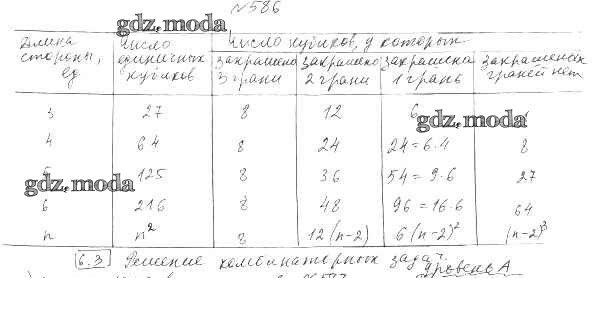 №586
gdz.moda
Длина стороны, ед
Число единичных кубиков
Число кубиков, у которых
закрашено 3 грани
закрашено 2 грани
закрашена 1 грань
закрашенных граней нет
3 27 8 12 6
gdz.moda
4 64 8 24 24=6.4 8
5 125 8 36 54=9.6 27
gdz.moda
6 216 8 48 96=16.6 64
n n² 8 12(n-2) 6(n-2)² (n-2)³
6.3 Решение комбинаторных задач.
Уровень А